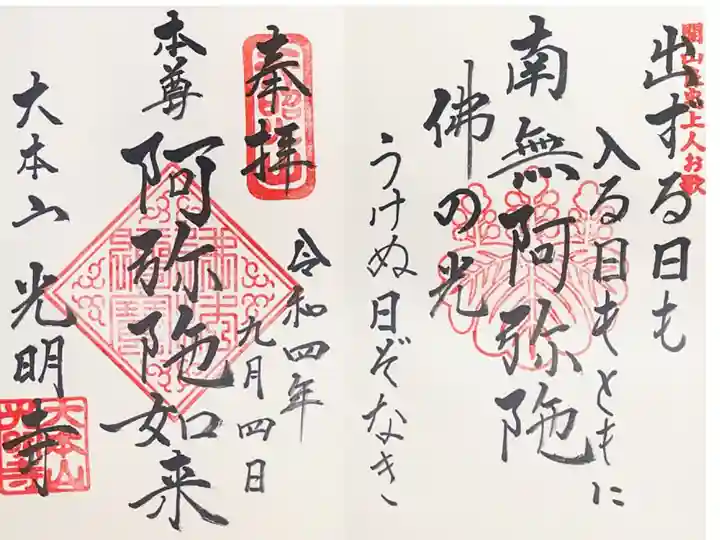 開山良忠上人お歌
出ずる日も
入る日もともに
南無阿弥陀
佛の光
うけぬ日ぞなき
奉拝
令和四年
九月四日
本尊
阿弥陀如来
大本山 光明寺
大本山
光明寺